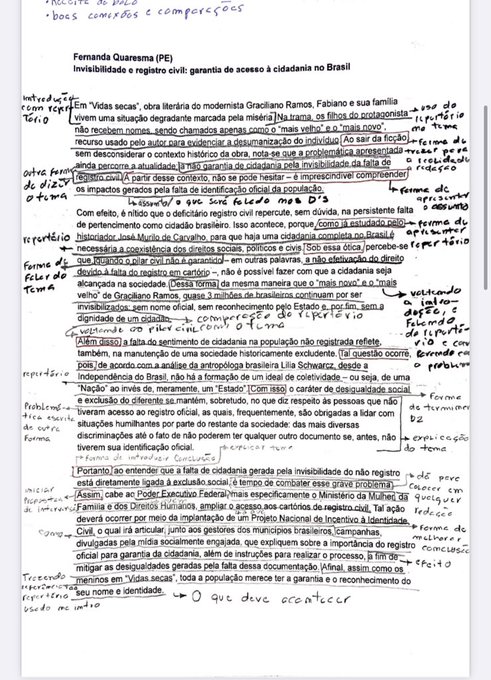 • receita de bolo
• boas conexões e comparações
Fernanda Quaresma (PE)
Invisibilidade e registro civil: garantia de acesso à cidadania no Brasil
introdução
com reper
tório
Em "Vidas secas", obra literária do modernista Graciliano Ramos, Fabiano e sua família
vivem uma situação degradante marcada pela miséria. Na trama, os filhos do protagonista
não recebem nomes, sendo chamados apenas como o "mais velho" e o "mais novo",
recurso usado pelo autor para evidenciar a desumanização do indivíduo. Ao sair da ficção,
sem desconsiderar o contexto histórico da obra, nota-se que a problemática apresentada
ainda percorre a atualidade: a não garantia de cidadania pela invisibilidade da falta de
registro civil. A partir desse contexto, não se pode hesitar – é imprescindível compreender
os impactos gerados pela falta de identificação oficial da população.
→ uso do
repertório
no tema
→ forma de
trazer para
a realidade
redação
outra forma
de dizer
o tema
→ forma de
apresentar
o assunto
→ assunto / o que será falado nos D'S
Com efeito, é nítido que o deficitário registro civil repercute, sem dúvida, na persistente falta
de pertencimento como cidadão brasileiro. Isso acontece, porque, como já estudado pelo
historiador José Murilo de Carvalho, para que haja uma cidadania completa no Brasil é
necessária a coexistência dos direitos sociais, políticos e civis. Sob essa ótica, percebe-se
que, quando o pilar civil não é garantido – em outras palavras, a não efetivação do direito
devido à falta do registro em cartório –, não é possível fazer com que a cidadania seja
alcançada na sociedade. Dessa forma, da mesma maneira que o "mais novo" e o "mais
velho" de Graciliano Ramos, quase 3 milhões de brasileiros continuam por ser
invisibilizados: sem nome oficial, sem reconhecimento pelo Estado e, por fim, sem a
dignidade de um cidadão.
→ forma de
apresentar
repertório
repertório
Forma de
falar do
Tema
→ voltando
a intro-
dução, e
falando
do repertó-
rio e con
→ comparação do repertório
→ voltando ao pilar civil com o tema
Além disso, a falta do sentimento de cidadania na população não registrada reflete,
também, na manutenção de uma sociedade historicamente excludente. Tal questão ocorre,
pois, de acordo com a análise da antropóloga brasileira Lilia Schwarcz, desde a
Independência do Brasil, não há a formação de um ideal de coletividade – ou seja, de uma
"Nação" ao invés de, meramente, um "Estado". Com isso, o caráter de desigualdade social
e exclusão do diferente se mantém, sobretudo, no que diz respeito às pessoas que não
tiveram acesso ao registro oficial, as quais, frequentemente, são obrigadas a lidar com
situações humilhantes por parte do restante da sociedade: das mais diversas
discriminações até o fato de não poderem ter qualquer outro documento se, antes, não
tiverem sua identificação oficial.
o problema
repertório
→ Forma
de terminar
D2
Problemá-
tica escrita
de outra
Forma
→ explicação
do tema
→ explicar tema
→ forma de introduzir conclusão
Portanto, ao entender que a falta de cidadania gerada pela invisibilidade do não registro
está diretamente ligada à exclusão social, é tempo de combater esse grave problema.
Assim, cabe ao Poder Executivo Federal, mais especificamente o Ministério da Mulher, da
Família e dos Direitos Humanos, ampliar o acesso aos cartórios de registro civil. Tal ação
deverá ocorrer por meio da implantação de um Projeto Nacional de Incentivo à Identidade
Civil, o qual irá articular, junto aos gestores dos municípios brasileiros, campanhas,
divulgadas pela mídia socialmente engajada, que expliquem sobre a importância do registro
oficial para garantia da cidadania, além de instruções para realizar o processo, a fim de
mitigar as desigualdades geradas pela falta dessa documentação. Afinal, assim como os
meninos em "Vidas secas", toda a população merece ter a garantia e o reconhecimento do
seu nome e identidade.
→ dá para
colocar em
qualquer
redação
iniciar
Propostas
de interven
→ Forma de
melhorar
conclusão
como
→ efeito
Trazendo
repertório
usado na intro
→ O que deve acontecer